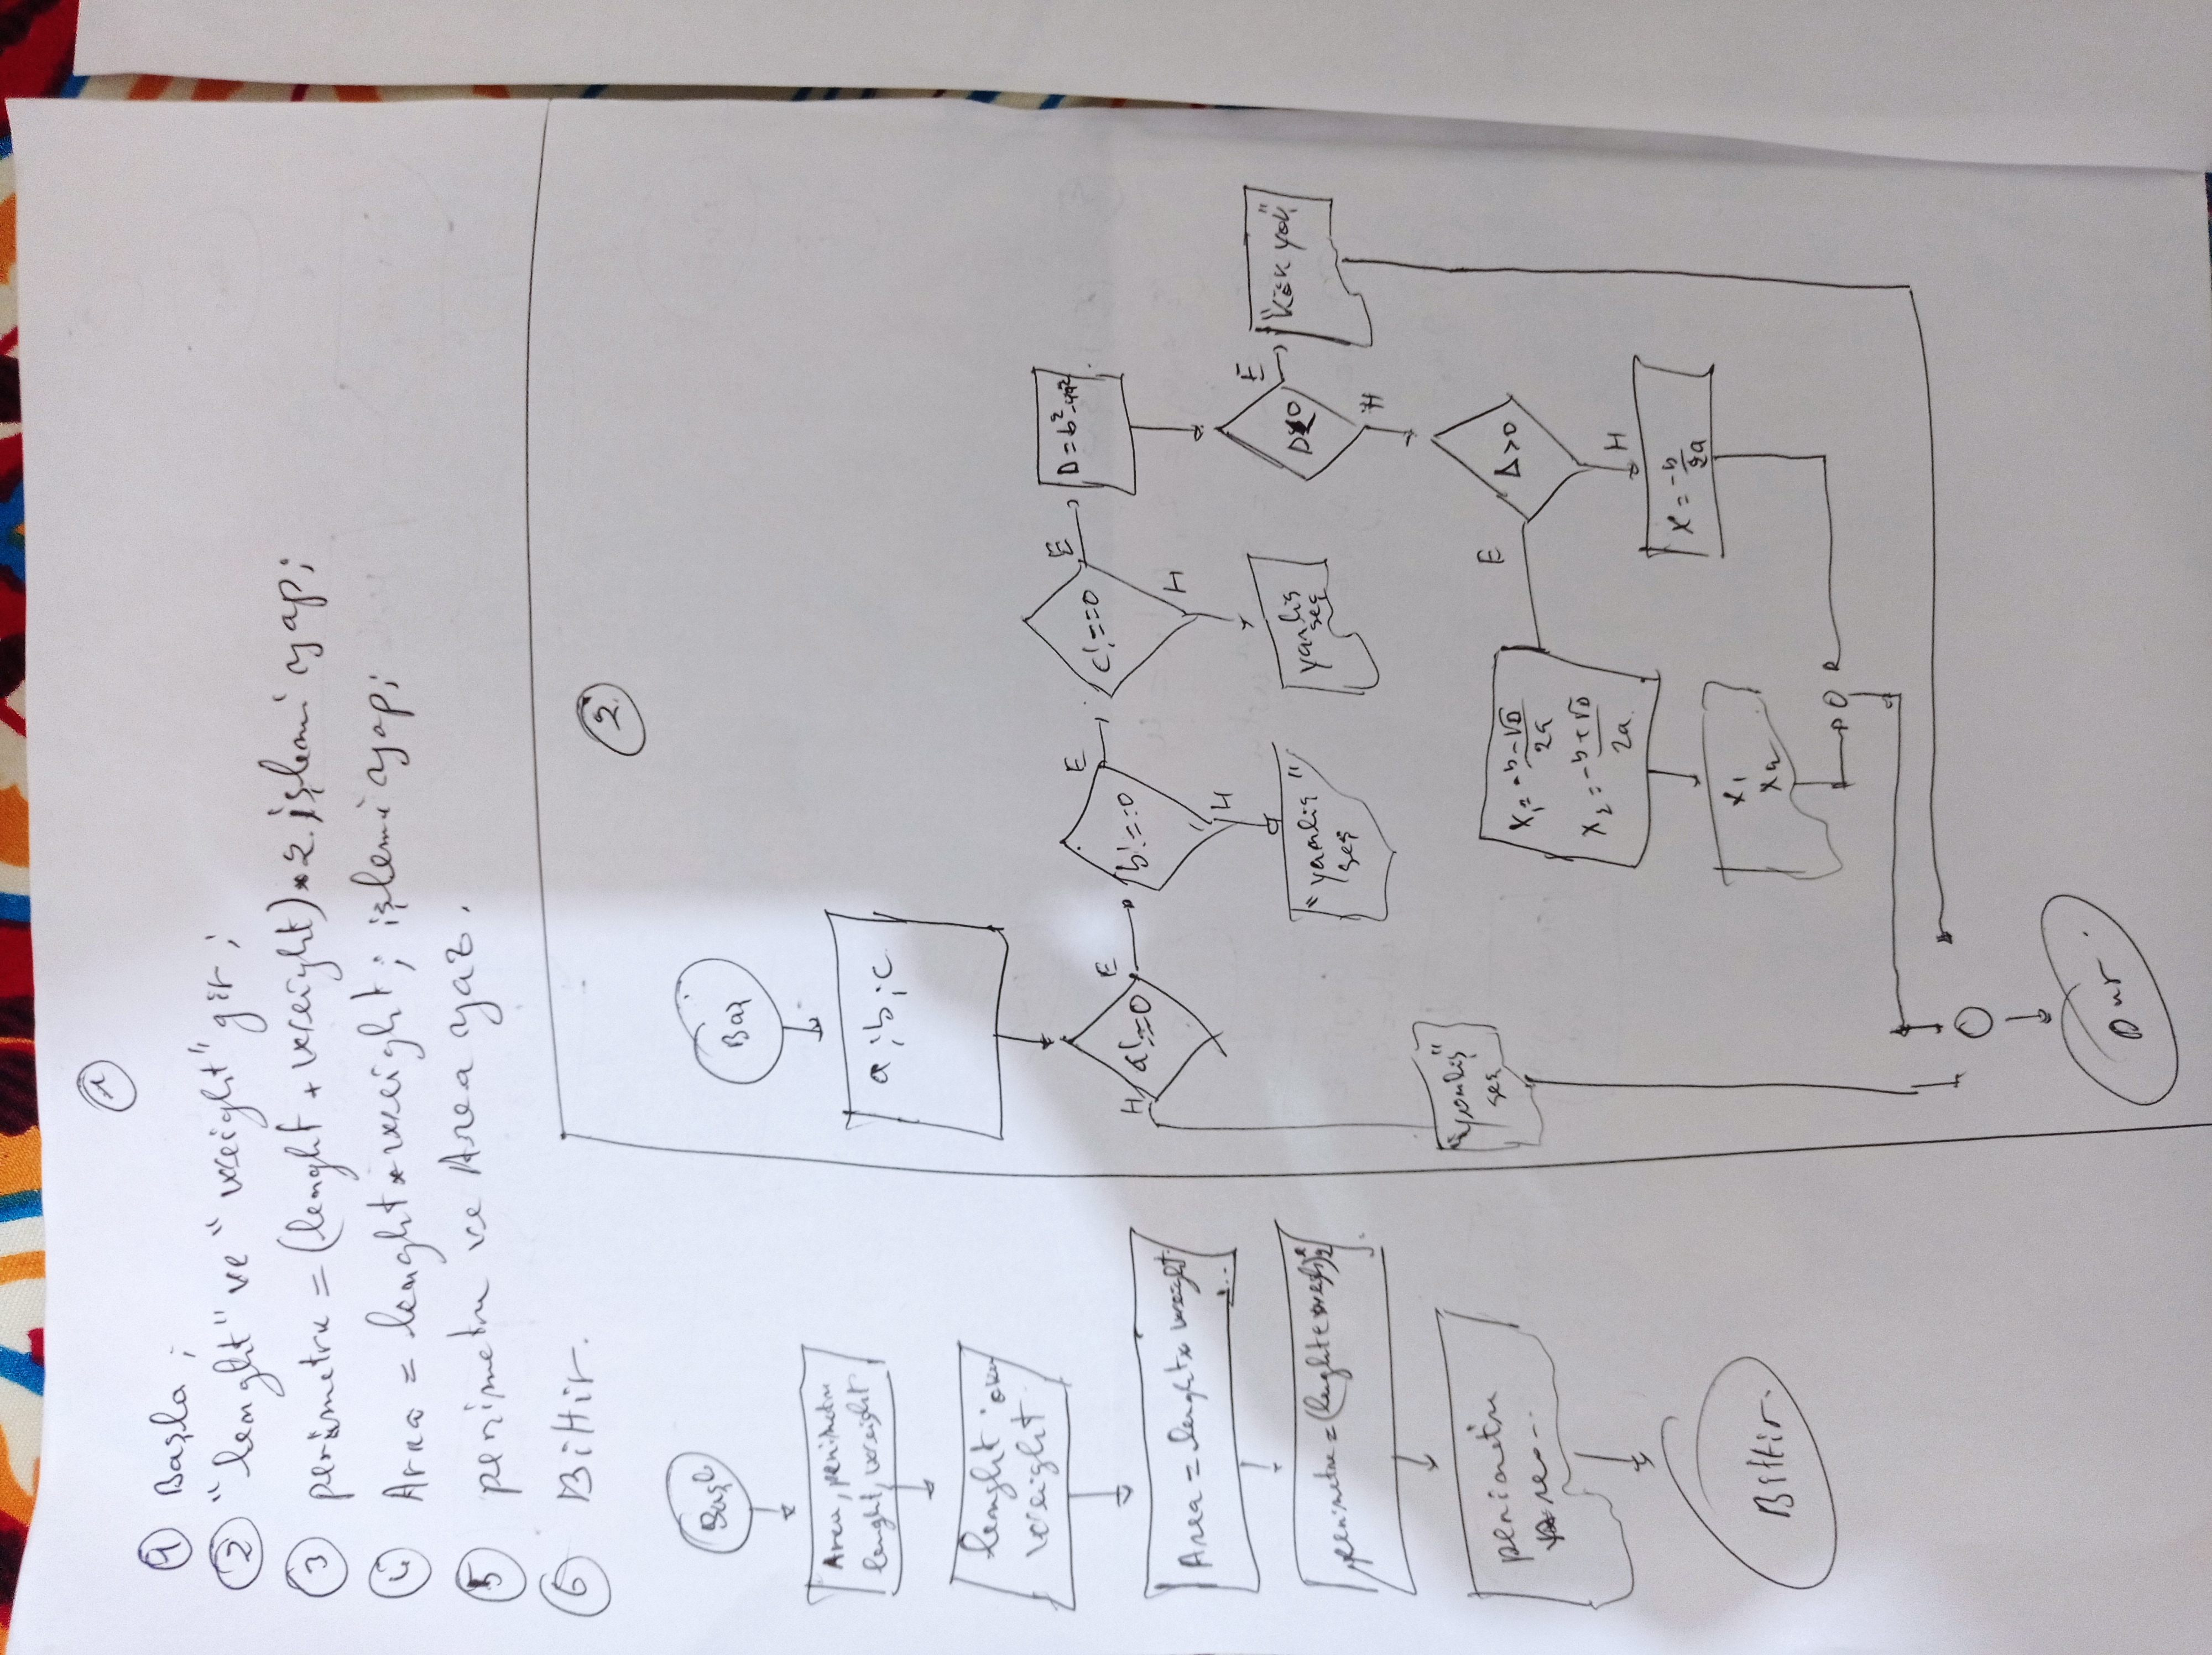 1
1 Başla ;
2 "lenght" ve "weight" gir ;
3 perimetre = (lenght + weight) * 2. işlemi yap;
4 Area = lenght * weight; işlemi yap;
5 perimetre ve Area yaz.
6 Bittir.
Başla
Area, perimetre
lenght, weight
lenght oku
weight
Area = lenght * weight
perimetre = (lenght +
perimetre
Bittir.
2.
Baş
a ; b ; c
H a!==0 E
b!==0 E
H
"yanlış"
seç
c!==0 E
H
yanlış
seç
D = b²-
D<0 E
H
"kök yok"
"yanlış"
seç
Δ>0
E
H
x₁ = -b-√D / 2a
x₂ = -b+√D / 2a
x = -b / 2a
x₁
x₂
Dur.